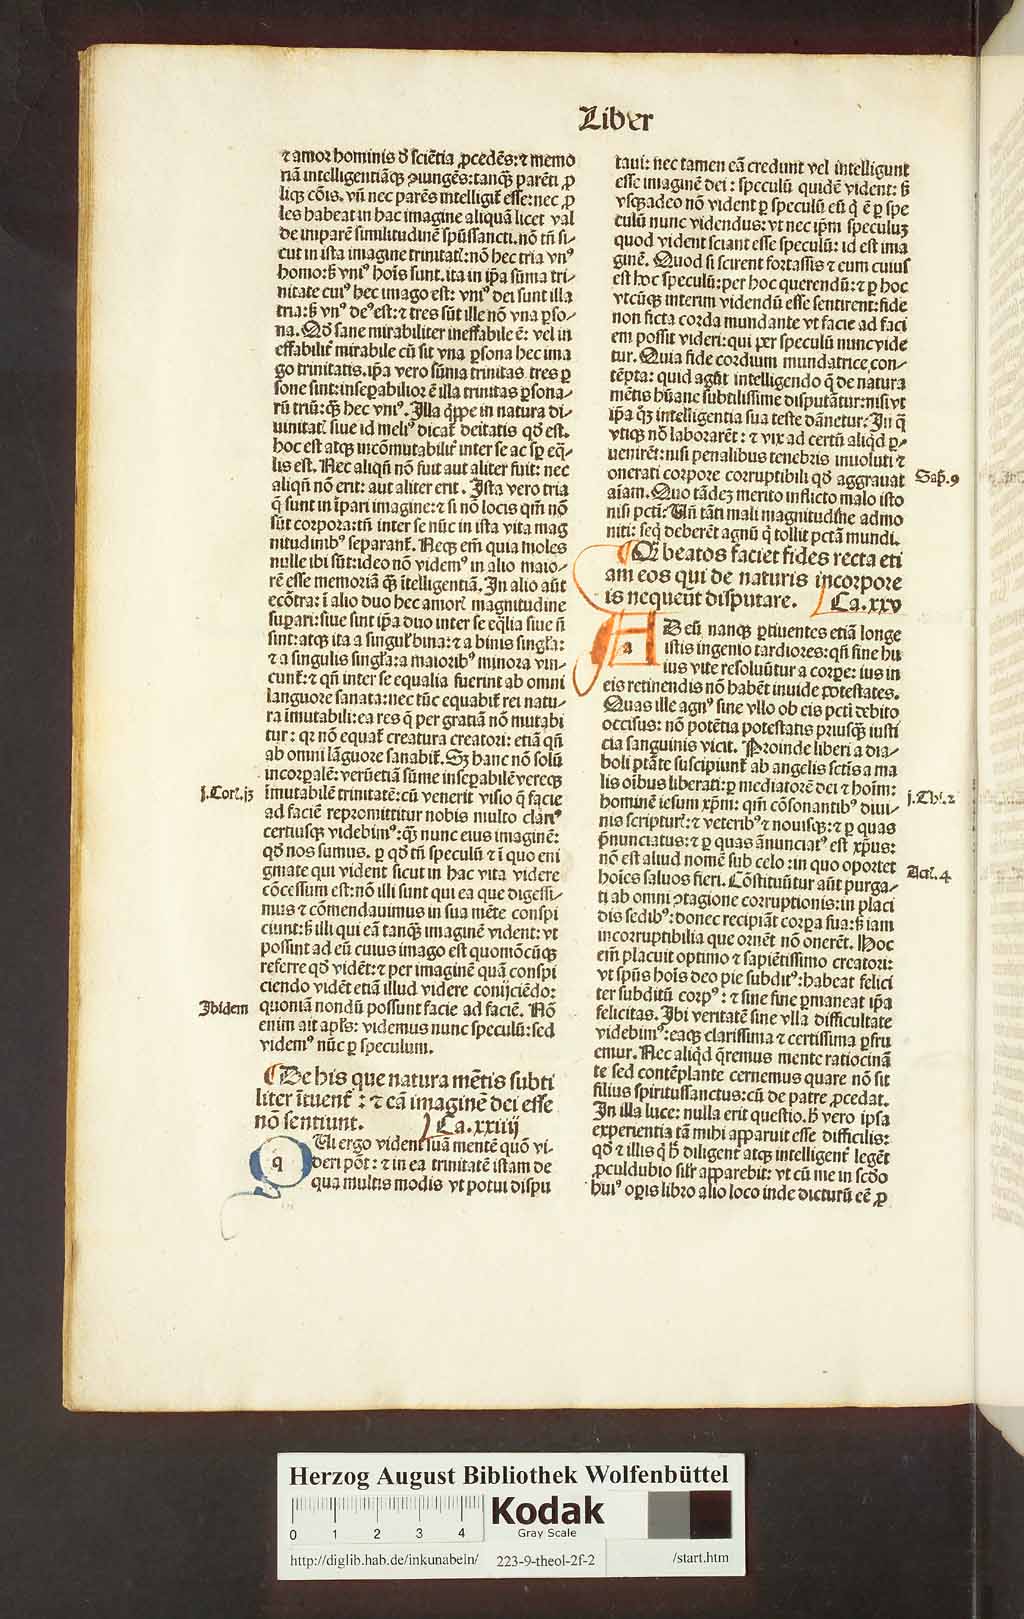 Liber
⁊ amor hominis d̕ sciētia ꝓcedēs: ⁊ memo
riā intelligentiāqꝫ ꝯiungēs: tanqꝫ parēti ꝓ
liqꝫ cōis. vñ nec parēs intelligit᷑ esse: nec ꝓ
les habeat in hac imagine aliquā licet val
de imparē similitudinē spūssancti. nō tñ si⸗
cut in ista imagine trinitatꝭ: nō hec tria vnꝰ
homo: sꝫ vniꝰ hoīs sunt. ita in ip̄a sūma tri⸗
nitate cuiꝰ hec imago est: vniꝰ dei sunt illa
tria: sꝫ vnꝰ deꝰ est: ⁊ tres sūt ille nō vna ꝑso⸗
na. Qd̕ sane mirabiliter ineffabile ē: vel in
effabilit᷑ mirabile cū sit vna ꝑsona hec ima
go trinitatis. ip̄a vero sūma trinitas tres ꝑ
sone sint: insepabilior ē illa trinitas ꝑsona⸗
rū triū: qꝫ hec vniꝰ. Illa q̄ppe in natura di⸗
uinitatꝭ siue id meliꝰ dicat᷑ deitatis qd̕ est.
hoc est atqꝫ incōmutabilit᷑ inter se ac sꝑ eq̄⸗
lis est. Nec aliqñ nō fuit aut aliter fuit: nec
aliqñ nō erit: aut aliter erit. Ista vero tria
q̄ sunt in īpari imagine: ⁊ si nō locis qm̄ nō
sūt corpora: tñ inter se nūc in ista vita mag
nitudinibꝰ separant᷑. Neqꝫ em̄ quia moles
nulle ibi sūt: ideo nō videmꝰ in alio maio⸗
rē esse memoriā qꝫ intelligentiā. In alio aūt
ecōtra: ī alio duo hec amorꝭ magnitudine
suꝑari: siue sint ip̄a duo inter se eq̄lia siue ñ
sint: atqꝫ ita a singul᷑ bina: ⁊ a binis singl᷑a:
⁊ a singulis singl᷑a: a maioribꝰ minora vin⸗
cunt᷑: ⁊ qñ inter se equalia fuerint ab omni
languore sanata: nec tūc equabit᷑ rei natu⸗
ra imutabili: ea res q̄ per gratiā nō mutabi
tur: qr nō equat᷑ creatura creatori: etiā qñ
ab omni lāguore sanabit᷑. Sꝫ hanc nō solū
incorpalē: verūetiā sūme insepabilē vereqꝫ
imutabilē trinitatē: cū venerit visio q̄ facie
ad faciē repromittitur nobis multo clariꝰ
certiusqꝫ videbimꝰ: qꝫ nunc eius imaginē:
qd̕ nos sumus. ꝑ qd̕ tñ speculū ⁊ ī quo eni
gmate qui vident sicut in hac vita videre
cōcessum est: nō illi sunt qui ea que digessi⸗
mus ⁊ cōmendauimus in sua mēte conspi
ciunt: sꝫ illi qui eā tanqꝫ imaginē vident: vt
possint ad eū cuius imago est quomōcūqꝫ
referre qd̕ vidēt: ⁊ per imaginē quā conspi
ciendo vidēt etiā illud videre conijciēdo:
quoniā nondū possunt facie ad faciē. Nō
enim ait apl̄s: videmus nunc speculū: sed
videmꝰ nūc ꝑ speculum.
j. Corꝭ. j3
Ibidem
¶ De his que natura mētis subti
liter īuenit᷑: ⁊ eā imaginē dei esse
nō sentiunt. Ca. xxiiij
q Ui ergo vident suā mentē quō vi⸗
deri pōt: ⁊ in ea trinitatē istam de
qua multis modis vt potui dispu
taui: nec tamen eā credunt vel intelligunt
esse imaginē dei: speculū quidē vident: sꝫ
vsqꝫadeo nō vident ꝑ speculū eū q̄ ē ꝑ spe
culū nunc videndus: vt nec ip̄m speculuꝫ
quod vident sciant esse speculū: id est ima
ginē. Quod si scirent fortassis ⁊ eum cuius
est hoc speculū: per hoc querendū: ⁊ ꝑ hoc
vtcūqꝫ interim videndū esse sentirent: fide
non ficta corda mundante vt facie ad faci
em possit videri: qui per speculū nunc vide
tur. Quia fide cordium mundatrice con⸗
tēpta: quid agūt intelligendo q̄ de natura
mētis hūane subtilissime disputātur: nisi vt
ip̄a qꝫ intelligentia sua teste dānetur: In q̄
vtiqꝫ nō laborarēt: ⁊ vix ad certū aliqd̕ ꝑ⸗
uenirēt: nisi penalibus tenebris inuoluti ⁊
onerati corpore corruptibili qd̕ aggrauat
aīam. Quo tādeꝫ merito inflicto malo isto
nisi pctī: Uñ tāti mali magnitudine admo
niti: seq̄ deberēt agnū q̄ tollit pctā mundi.
Sap̄. 9
¶ Qꝫ beatos faciet fides recta eti
am eos qui de naturis incorpore
is nequeūt disputare. Ca. xxv
a D eū nanqꝫ ꝑtinentes etiā longe
istis ingenio tardiores: qñ fine hu
ius vite resoluūtur a corpe: ius in
eis retinendis nō habēt inuide potestates.
Quas ille agnꝰ sine vllo ob eis pcti debito
occisus: nō potētia potestatis priusqꝫ iusti
cia sanguinis vicit. Proinde liberi a dia⸗
boli ptāte suscipiunt᷑ ab angelis sctīs a ma
lis oībus liberati: ꝑ mediatorē dei ⁊ hoīm:
hominē iesum xp̄m: qm̄ cōsonantibꝰ diui⸗
nis scripturꝭ: ⁊ veteribꝰ ⁊ nouisqꝫ: ⁊ ꝑ quas
p̄nunciatus: ⁊ ꝑ quas ānunciatꝰ est xp̄us:
nō est aliud nomē sub celo: in quo oportet
hoīes saluos fieri. Cōstituūtur aūt purga⸗
ti ab omni ꝯtagione corruptionis: in placi
dis sedibꝰ: donec recipiāt corpa sua: sꝫ iam
incorruptibilia que ornēt nō onerēt. Hoc
em̄ placuit optimo ⁊ sapiētissimo creatori:
vt spūs hoīs deo pie subditꝰ: habeat felici
ter subditū corpꝰ: ⁊ sine fine ꝑmaneat ip̄a
felicitas. Ibi veritatē sine vlla difficultate
videbimꝰ: eaqꝫ clarissima ⁊ certissima ꝑfru
emur. Nec aliqd̕ q̄remus mente ratiocinā
te sed contēplante cernemus quare nō sit
filius spiritussanctus: cū de patre ꝓcedat.
In illa luce: nulla erit questio. hꝭ vero ipsa
experientia tā mihi apparuit esse difficilis:
qd̕ ⁊ illis q̄ hꝭ diligent᷑ atqꝫ intelligent᷑ legēt
ꝓculdubio sil᷑r apparebit: vt cū me in scd̕o
huiꝰ oꝑis libro alio loco inde dicturū eē ꝓ
j. Thiꝭ. 2
Actꝭ. 4
Herzog August Bibliothek Wolfenbüttel
0 1 2 3 4
Kodak
Gray Scale
http://diglib.hab.de/inkunabeln/ 223-9-theol-2f-2 /start.htm